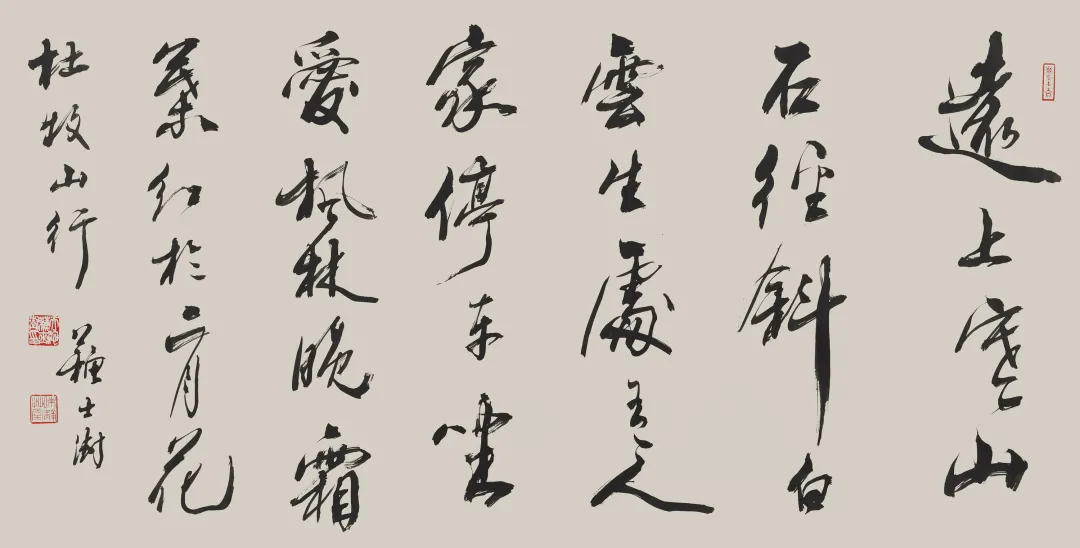 遠上寒山
石徑斜白
雲生處有人
家停車坐
愛楓林晚霜
葉紅於二月花
杜牧山行
蘇士澍